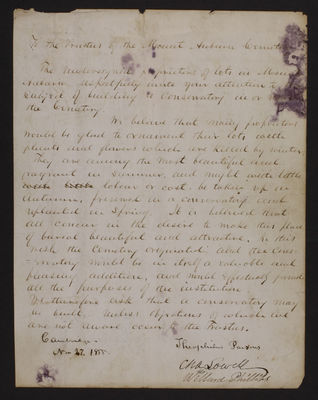 To the Trustees of the Mount Auburn Cemetery
The undersigned proprietors of lots in Mount
Auburn respectfully invite your attention to the
subject of building a Conservatory in or near
the Cemetery.
We believe that many proprietors
would be glad to ornament their lots with
plants and flowers which are killed by winter.
They are among the most beautiful and
fragrant in summer, and might with little
labour or cost be taken up in
Autumn, preserved in a conservatory and
replanted in Spring. It is believed that
all concur in the desire to make this place
of burial beautiful and attractive. In this
wish the Cemetery originated and the Conser-
vatory would be in itself a valuable and
pleasing addition, and would effectually promote
all the purposes of the institution.
We therefore ask that a conservatory may
be built, unless objections of which we
are not aware occur to the Trustees.
Cambridge
Nov 27. 1855.
Theophilus Parsons
Cha Lowell
Willard Phillips